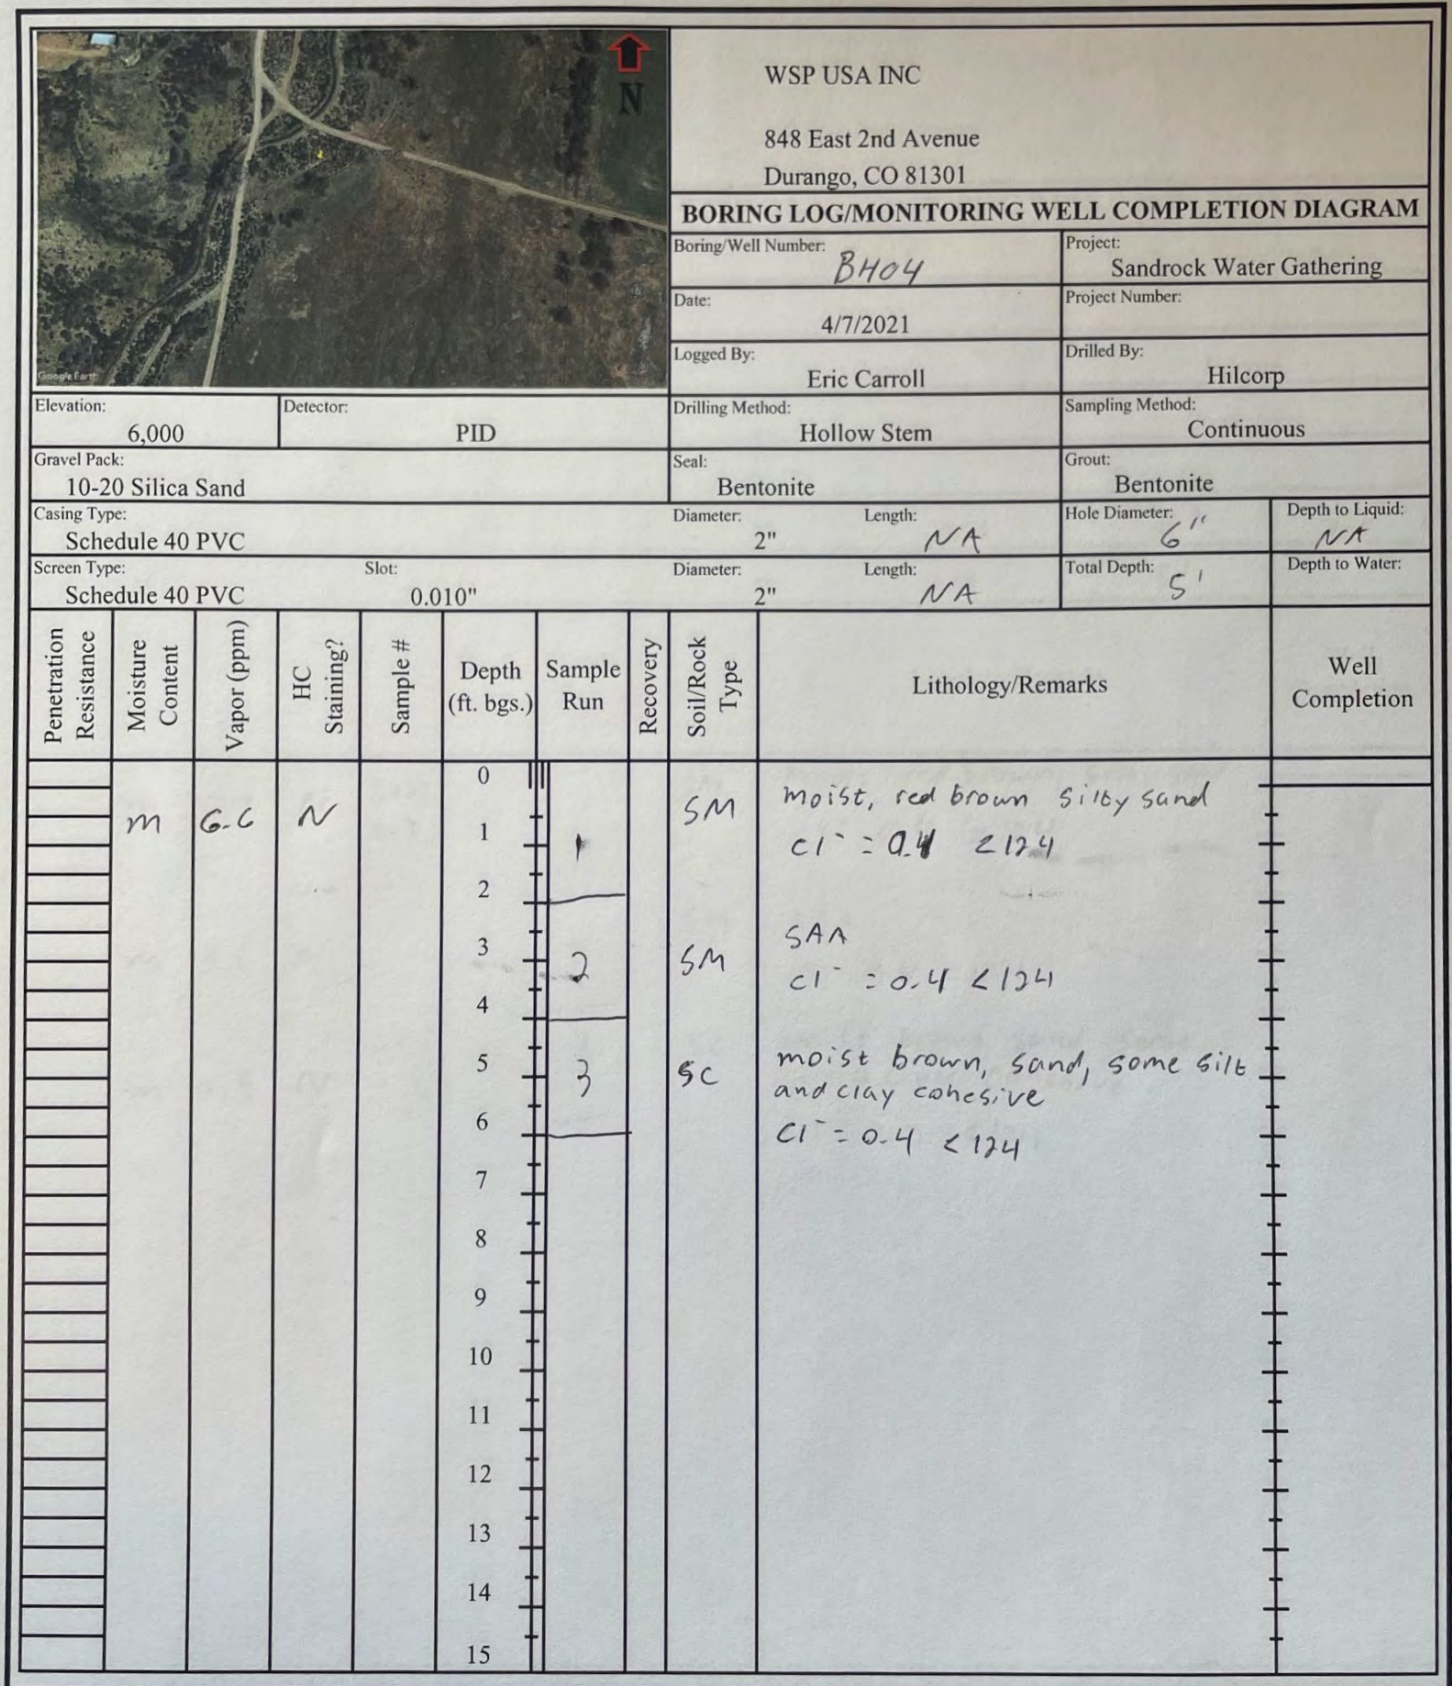 N
Google Earth
WSP USA INC
848 East 2nd Avenue
Durango, CO 81301
BORING LOG/MONITORING WELL COMPLETION DIAGRAM
Boring/Well Number: BH04
Project: Sandrock Water Gathering
Date: 4/7/2021
Project Number:
Logged By: Eric Carroll
Drilled By: Hilcorp
Elevation: 6,000
Detector: PID
Drilling Method: Hollow Stem
Sampling Method: Continuous
Gravel Pack: 10-20 Silica Sand
Seal: Bentonite
Grout: Bentonite
Casing Type: Schedule 40 PVC
Diameter: 2"
Length: NA
Hole Diameter: 6"
Depth to Liquid: NA
Screen Type: Schedule 40 PVC
Slot: 0.010"
Diameter: 2"
Length: NA
Total Depth: 5'
Depth to Water:
Penetration Resistance
Moisture Content
Vapor (ppm)
HC Staining?
Sample #
Depth (ft. bgs.)
Sample Run
Recovery
Soil/Rock Type
Lithology/Remarks
Well Completion
0
m
N
1
1
SM
moist, red brown silty sand
Cl⁻ = 0.4 <124
2
3
2
SM
SAA
Cl⁻ = 0.4 <124
4
5
3
SC
moist brown, sand, some silt
and clay cohesive
6
Cl⁻ = 0.4 <124
7
8
9
10
11
12
13
14
15